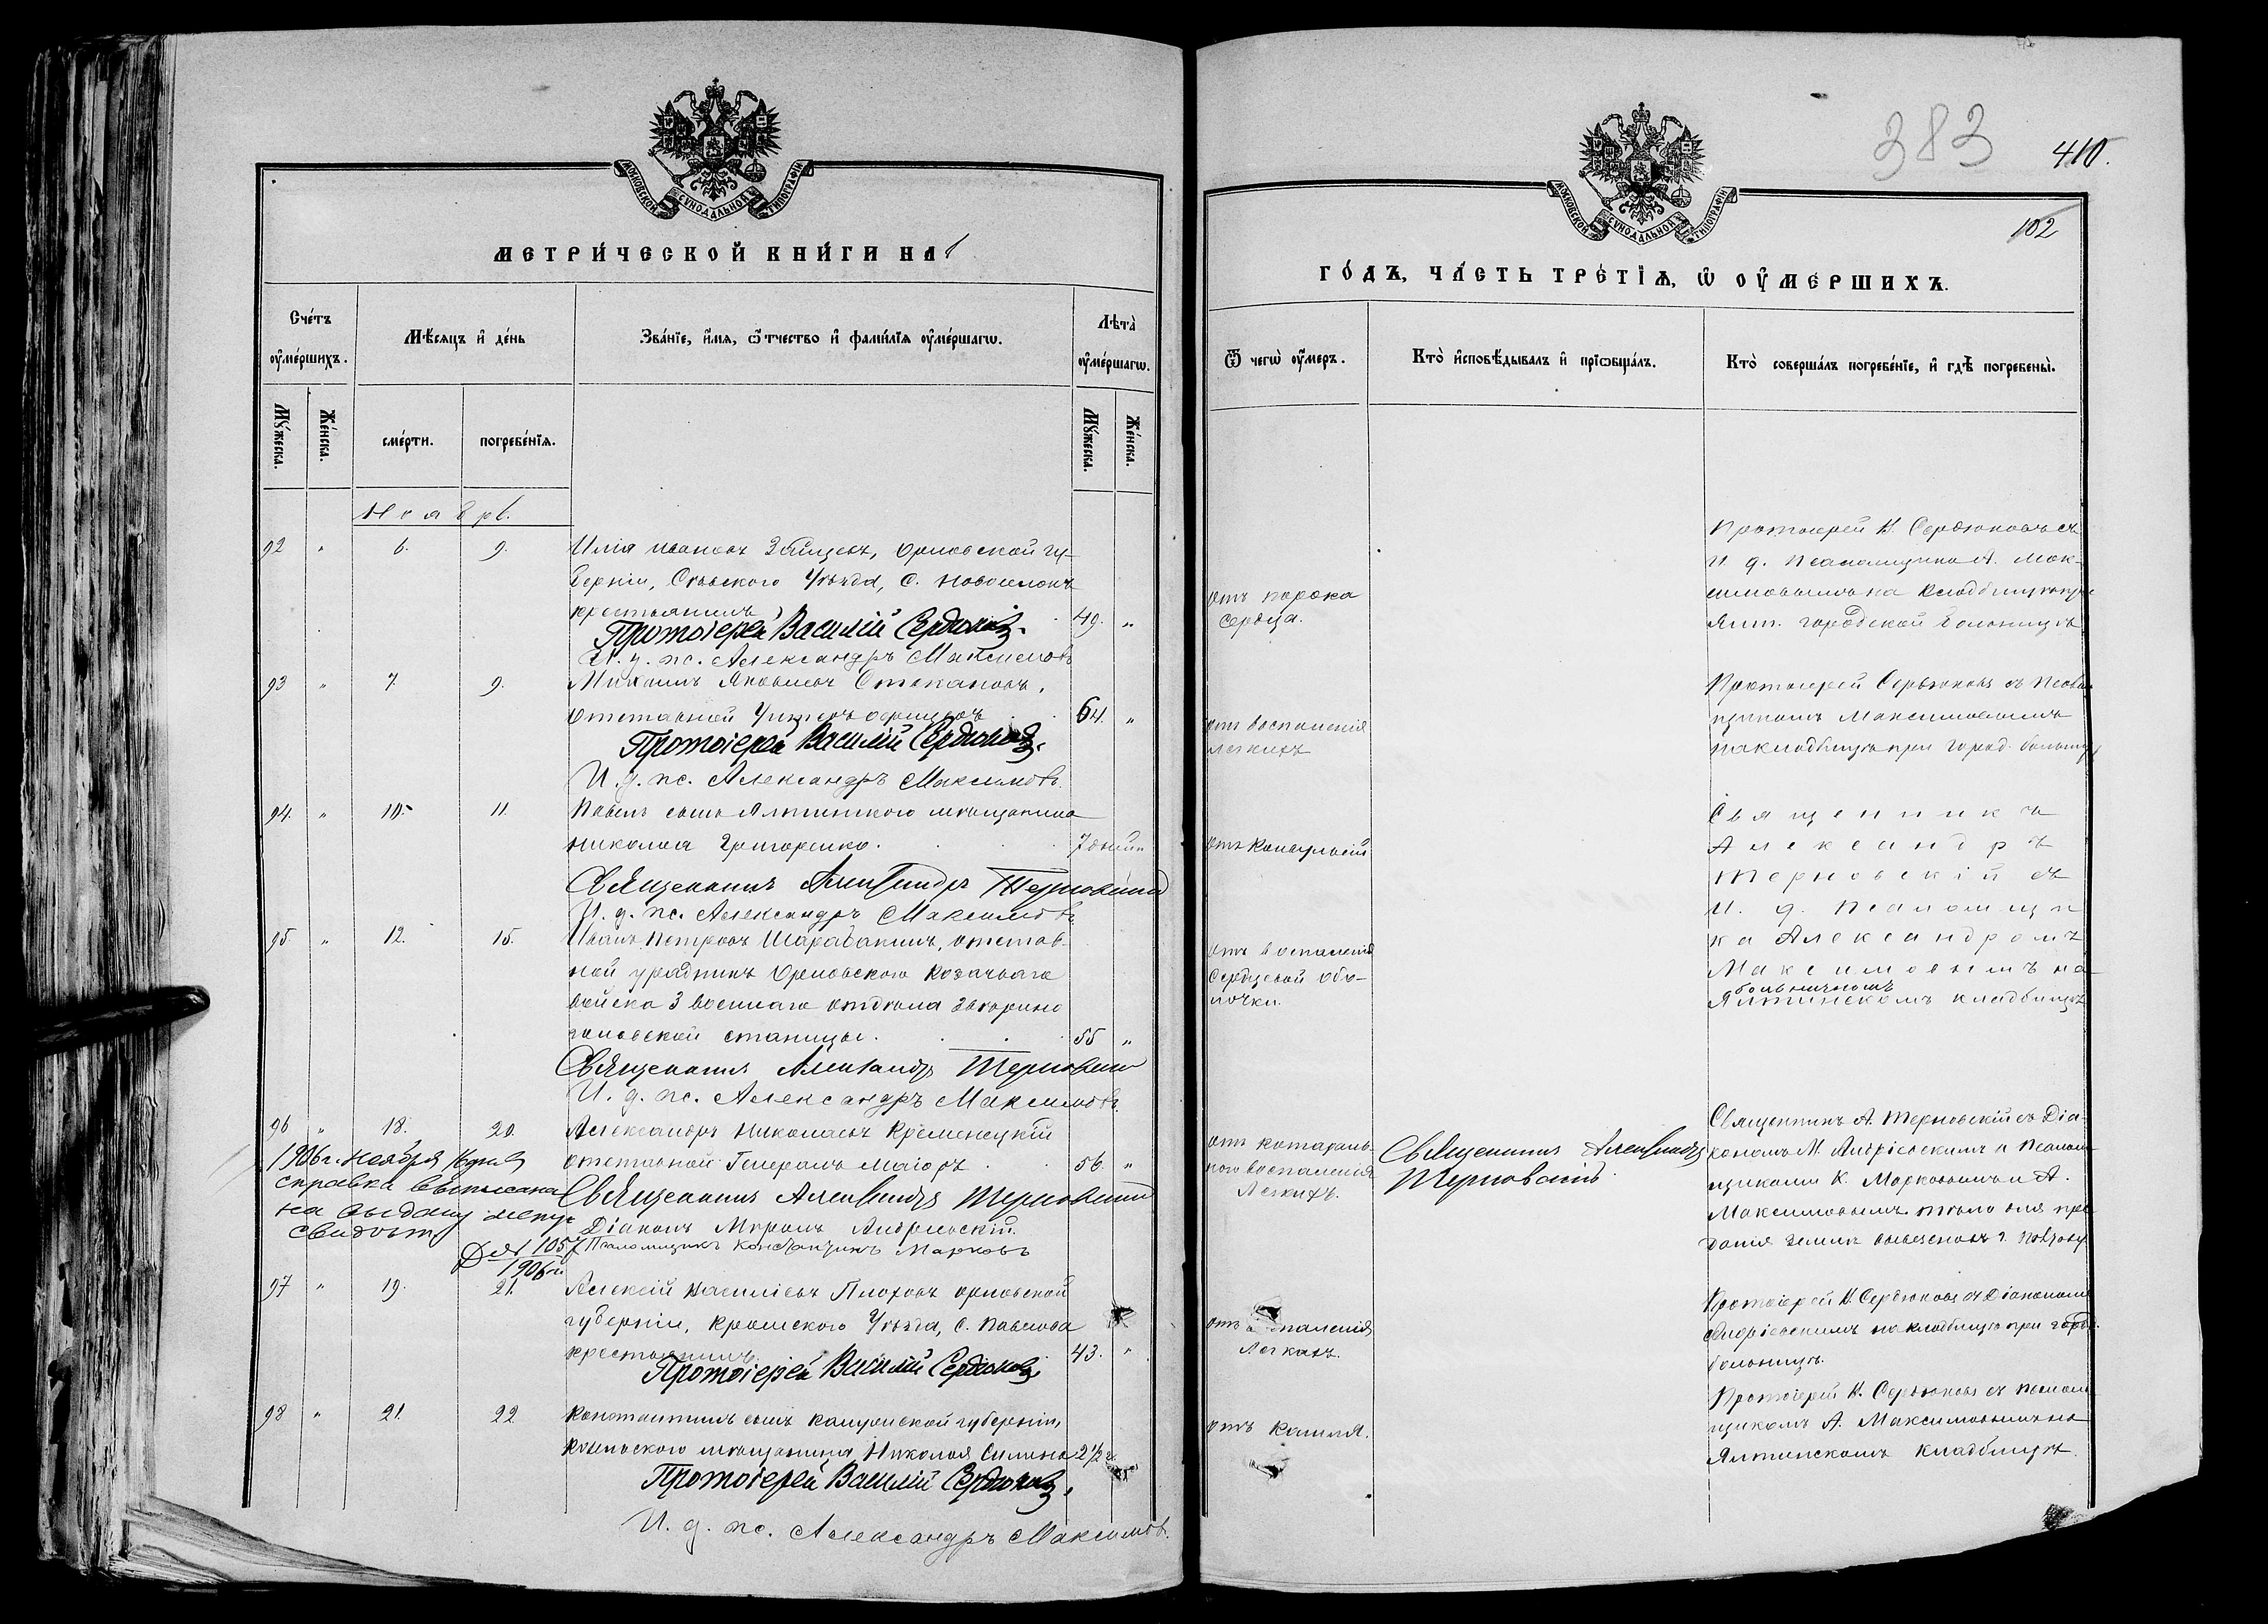 МОСКОВСКОЙ СѴНОДАЛЬНОЙ ТИПОГРАФІИ
МЕТРИ́ЧЕСКОЙ КНИ́ГИ НА
Сче́тъ ᲂу҆ме́ршихъ.
Мѣ́сяцъ и҆ де́нь
Зва́нїе, и҆́мя, ѻ҆́тчество и҆ фами́лїя ᲂу҆ме́ршагѡ.
Лѣта̀ ᲂу҆ме́ршагѡ.
Мꙋ́жеска.
Же́нска.
сме́рти.
погребе́нїѧ.
Мꙋ́жеска.
Же́нска.
Ноябрь.
92 " 6. 9. Илія Ивановъ Зайцевъ, Орловской гу-
берніи, Сѣвского Уѣзда, С. Новоселокъ
крестьянинъ 49. "
Протоіерей Василій Сердюковъ.
И. д. пс. Александръ Максимовъ
93 " 7. 9. Михаилъ Яковлевъ Стакановъ,
отставной Унтеръ офицеръ 64. "
Протоіерей Василій Сердюковъ.
И. д. пс. Александръ Максимовъ.
94. " 10. 11. Павелъ сынъ Ялтинского мѣщанина
Николая Григоренко. 7 дней "
Священникъ Александръ Терновскій
И. д. пс. Александръ Максимовъ
95 " 12. 15. Иванъ Петровъ Шарабакинъ, отстав-
ной урядникъ Орловского Козачьяго
войска 3 военнаго отдѣла
станицы. 55 "
Священникъ Александръ Терновскій
И. д. пс. Александръ Максимовъ.
96 " 18. 20. Александръ Николаевъ Кременецкій
отставной Генералъ Маіоръ 56. "
1906 г. Ноября
справка выписана
на выдачу метр
свидѣт
Дел 1057
1906 г.
Священникъ Александръ Терновскій
Діаконъ Миронъ Андріевскій.
Псаломщикъ Константинъ Марковъ
97 " 19. 21. Алексій Василіевъ Плотовъ Орловской
губерніи, Кромского Уѣзда, С. Павлова
крестьянинъ. 43. "
Протоіерей Василій Сердюковъ
98 " 21. 22 Константинъ сынъ Калужской губерніи,
Козельского мѣщанина Николая Силина 2 1/2 г.
Протоіерей Василій Сердюковъ.
И. д. пс. Александръ Максимовъ.
383
410.
МОСКОВСКОЙ СѴНОДАЛЬНОЙ ТИПОГРАФІИ
102
ГО́ДЪ, ЧА́СТЬ ТРЕ́ТЇѦ, Ѡ҆ ОУ҆МЕ́РШИХЪ.
Ѿ чегѡ̀ ᲂу҆́меръ.
Кто̀ и҆сповѣ́дывалъ и҆ прїѡбща́лъ.
Кто̀ соверша́лъ погребе́нїе, и҆ гдѣ̀ погребены̀.
отъ порока
сердца.
Протоіерей В. Сердюковъ съ
И. д. Псаломщика А. Мак-
симовымъ на Кладбищѣ при
Ялт. городской больницѣ
отъ воспаленія
легкихъ
Протоіерей Сердюковъ съ Псалом
щикомъ Максимовымъ
на кладбищѣ при город. больниц
отъ Конвульсій
Священникъ
Александръ
Терновскій съ
И. д. Псаломщи
ка Александромъ
Максимовымъ на
больничномъ
Ялтинскомъ кладбищѣ
отъ воспаленія
сердцевой обо-
лочки.
отъ катараль
ного воспаленія
Легкихъ.
Священникъ Александръ
Терновскій
Священникъ А. Терновскій съ Діа-
кономъ М. Андріевскимъ и Псалом
щиками К. Марковымъ и А.
Максимовымъ. тѣло для пре
данія землѣ вывезено въ г. Полтаву
отъ воспаленія
Легкихъ.
Протоіерей В. Сердюковъ съ Діакономъ
Андріевскимъ на кладбищѣ при город.
больницѣ.
отъ Кашля.
Протоіерей В. Сердюковъ съ Псалом
щикомъ А. Максимовымъ на
Ялтинскомъ кладбищѣ.